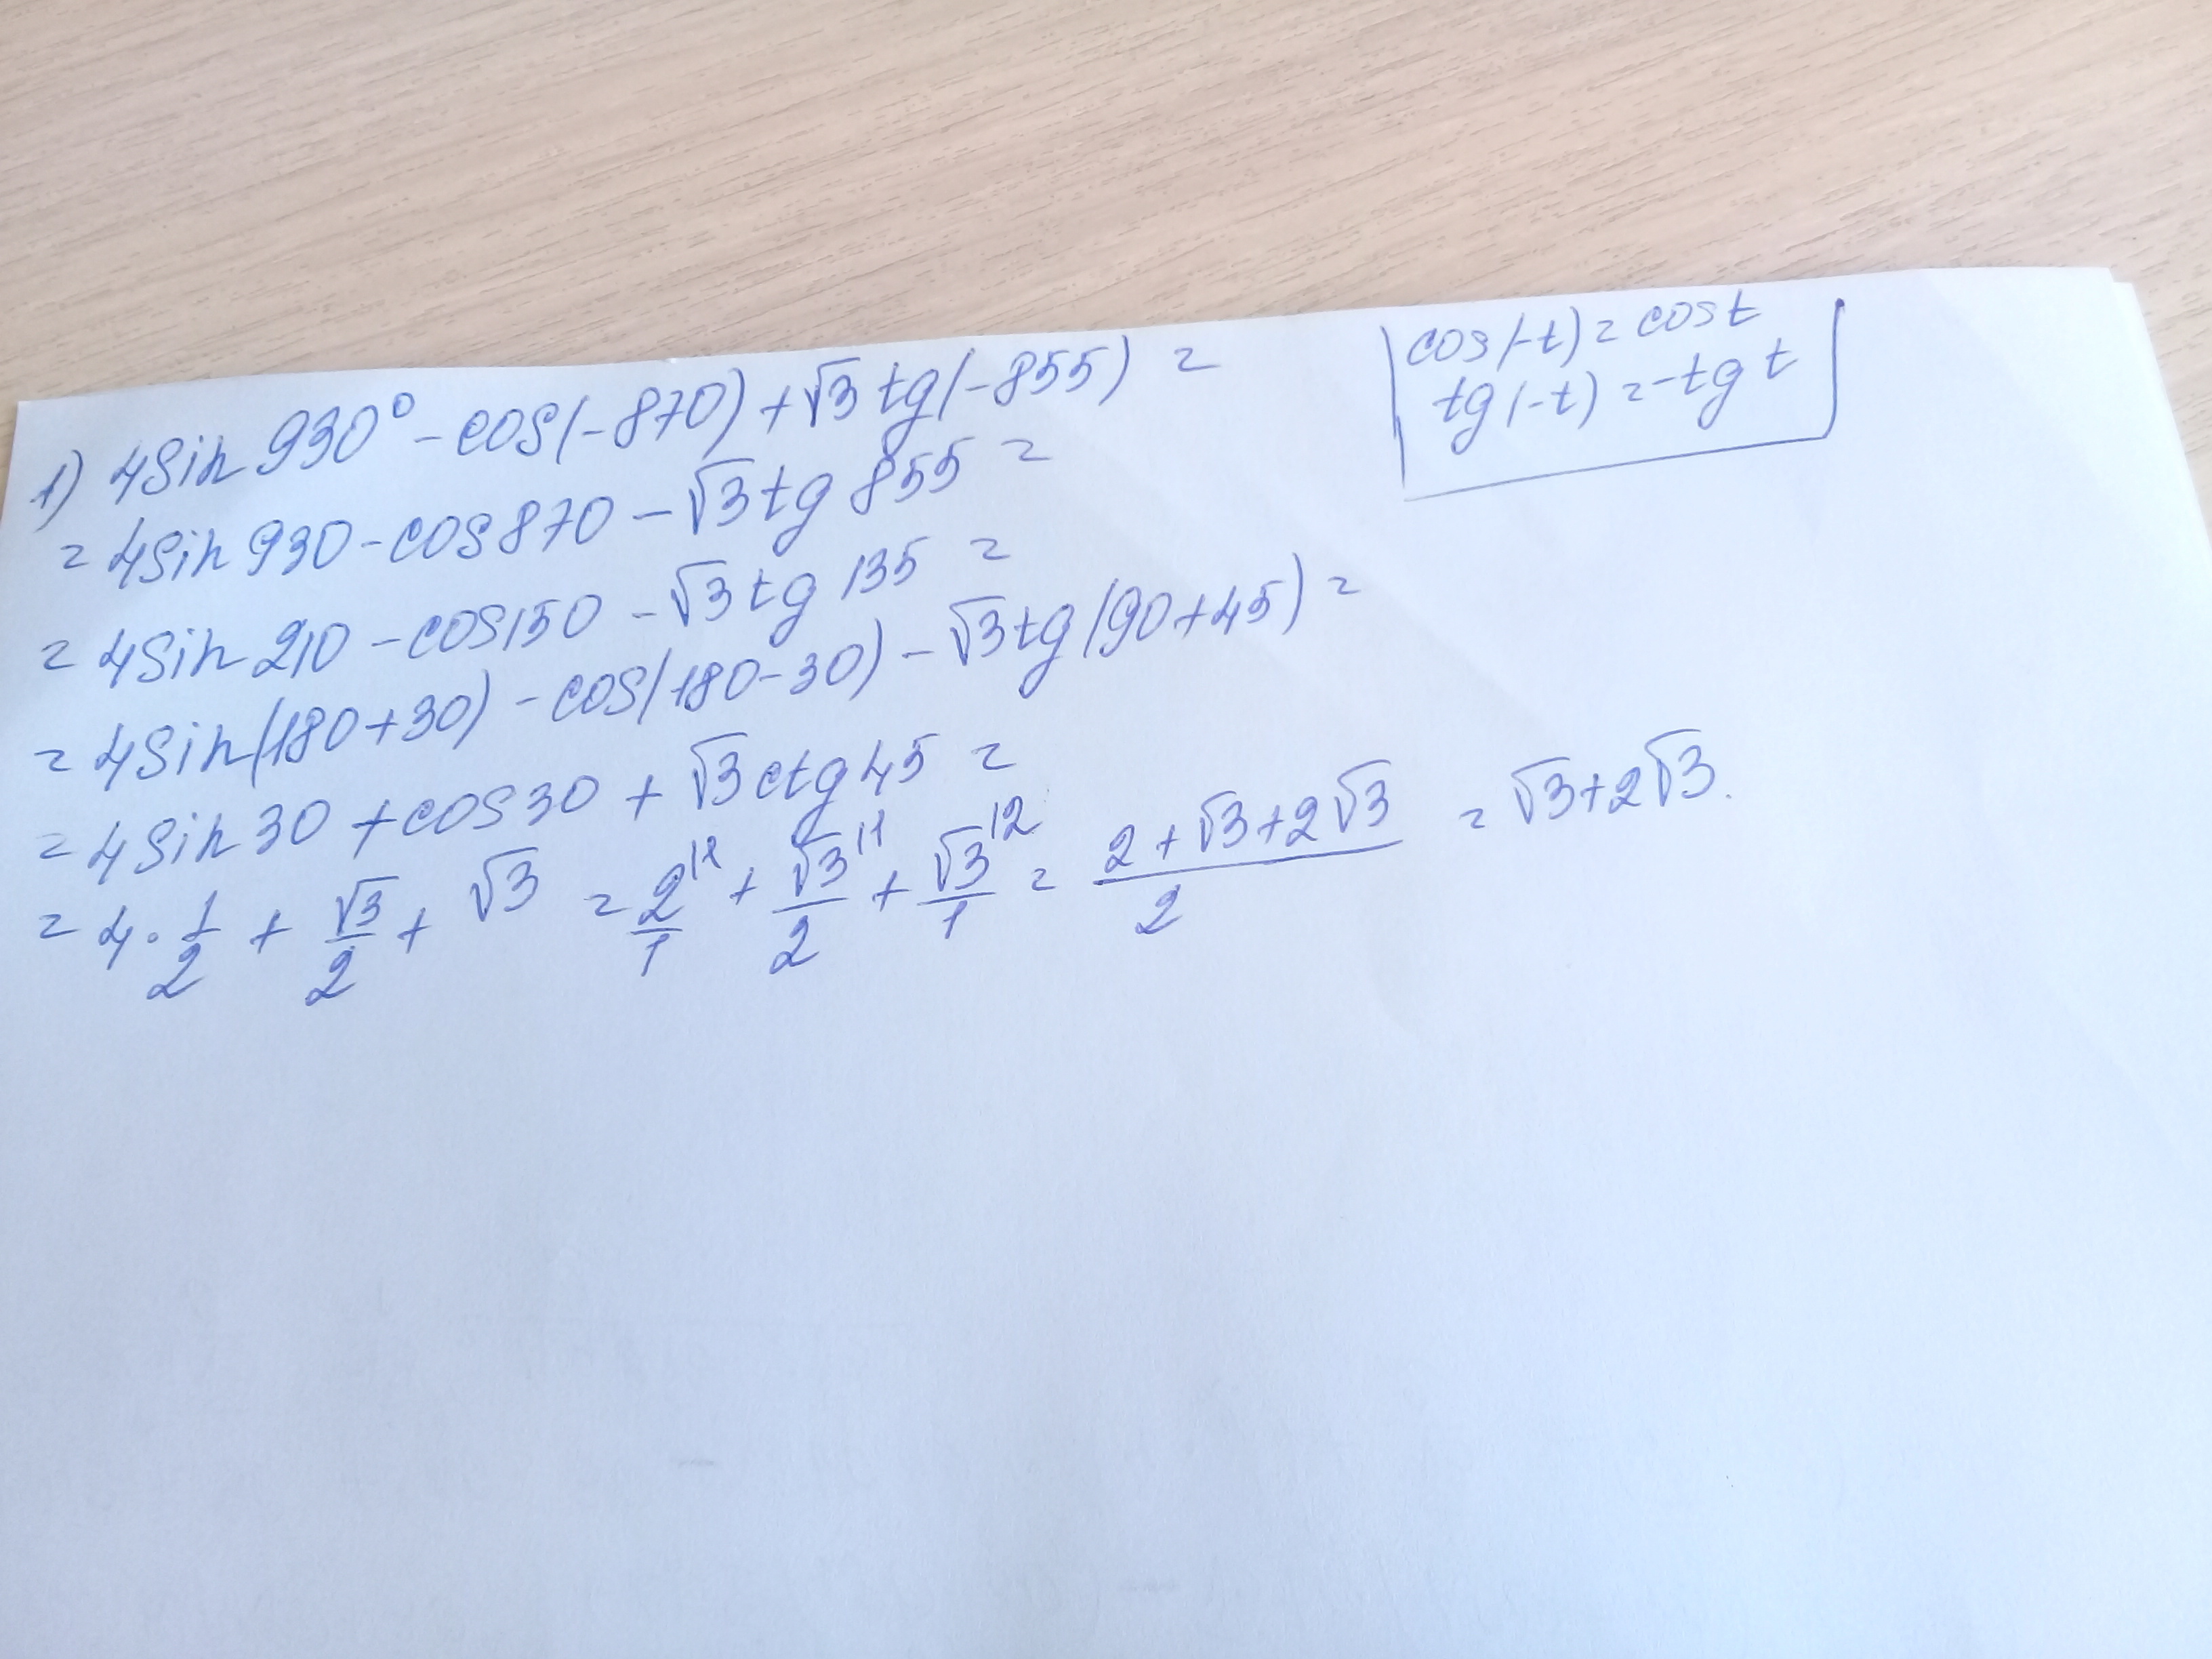 1) 4sin 930° - cos(-870) + √3 tg(-855) =
cos(-t) = cos t
tg(-t) = -tg t
= 4sin 930 - cos 870 - √3 tg 855 =
= 4sin 210 - cos 150 - √3 tg 135 =
= 4sin(180+30) - cos(180-30) - √3 tg(90+45) =
= 4sin 30 + cos 30 + √3 ctg 45 =
= 4 · 1/2 + √3/2 + √3 = 2/1 + √3/2 |1 + √3/1 |2 = (2 + √3 + 2√3)/2 = √3 + 2√3.